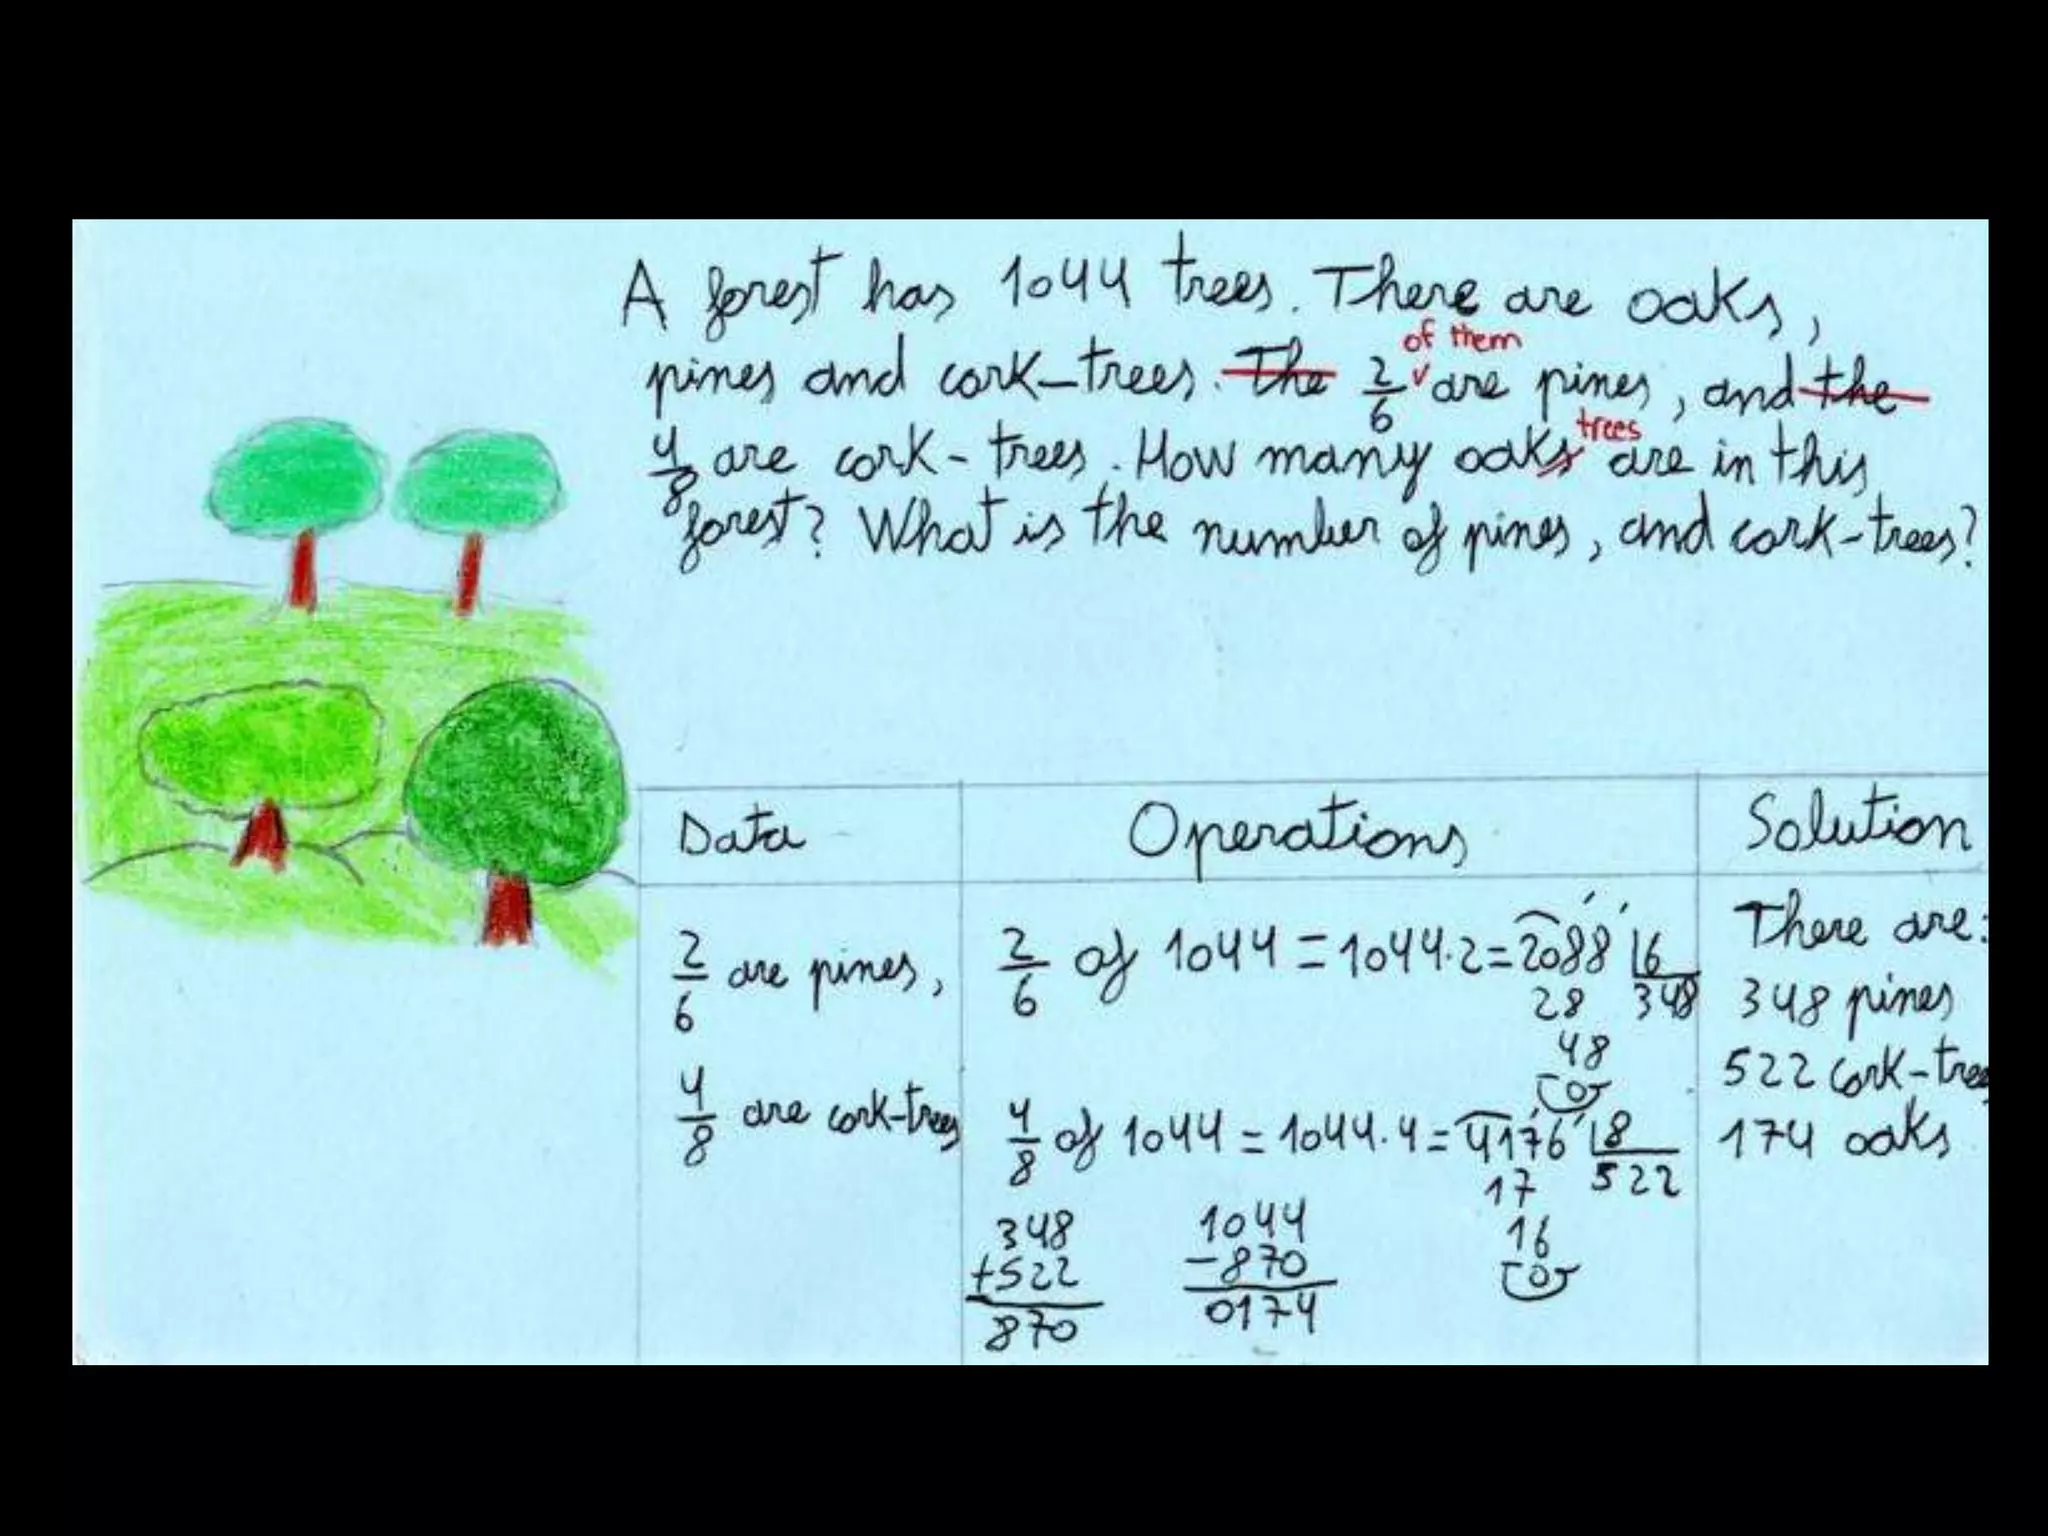 A forest has 1044 trees. There are oaks,
of them
pines and cork-trees. The 2/6 are pines, and the
trees
4/8 are cork-trees. How many oaks are in this
forest? What is the number of pines, and cork-trees?
Data
Operations
Solution
2/6 are pines,
4/8 are cork-trees
2/6 of 1044 = 1044·2 = 2088 6
28 348
48
0
4/8 of 1044 = 1044.4 = 4176 8
17 522
16
0
348
+522
870
1044
-870
0174
There are:
348 pines
522 cork-trees
174 oaks